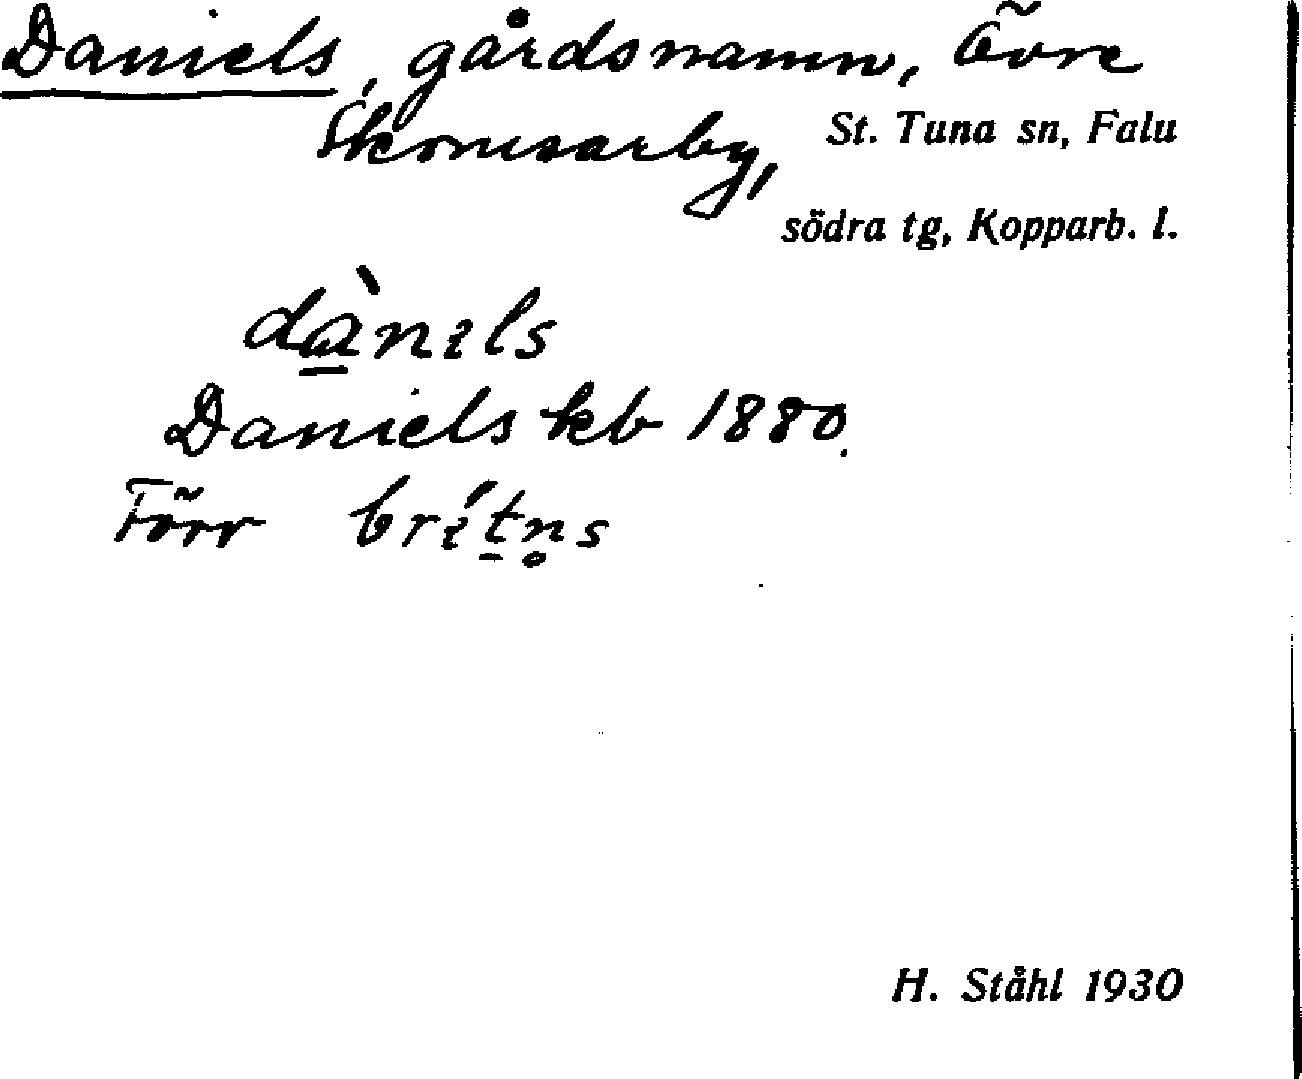 Daniels, gårdsnamn, Övre
Skomsarby, St. Tuna sn, Falu
södra tg, Kopparb. l.
dànɩls
Daniels kb 1880.
Förr brɩ́t̠n̥s
H. Ståhl 1930